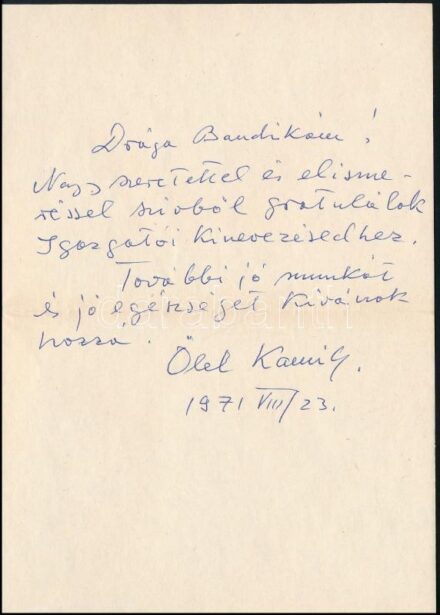 Drága Bandikám!
Nagy szeretettel és elisme-
réssel szivből gratulálok
Igazgatói kinevezésedhez.
További jó munkát
és jó egészséget kivánok
hozzá.
Ölel Kamill.
1971 VIII/23.